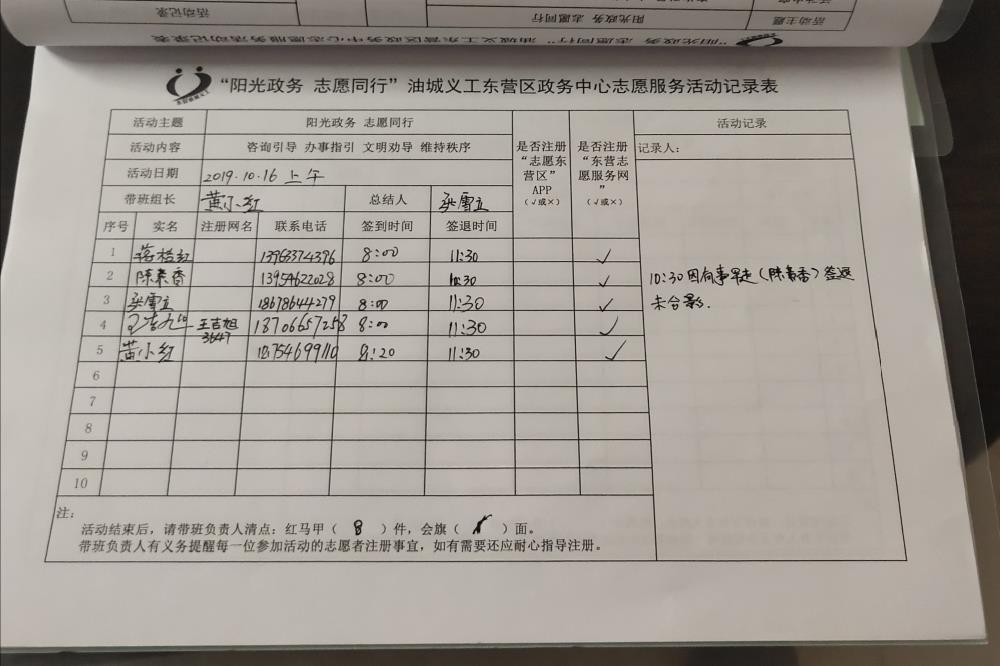 活动记录
阳光政务 志愿同行
活动主题
“阳光政务 志愿同行”油城义工东营区政务中心志愿服务活动记录表
“阳光政务 志愿同行”油城义工东营区政务中心志愿服务活动记录表
活动主题 阳光政务 志愿同行 是否注册“志愿东营区”APP（√或×） 是否注册“东营志愿服务网”（√或×） 活动记录
活动内容 咨询引导 办事指引 文明劝导 维持秩序 记录人：
活动日期 2019.10.16 上午
带班组长 黄小红 总结人
序号 实名 注册网名 联系电话 签到时间 签退时间
1 13963374396 8:00 11:30 √
2 陈素香 13954622028 8:00 10:30 √
3 18678644279 8:00 11:30 √
4 王吉旭3647 18706657258 8:00 11:30 √
5 黄小红 18754699110 8:20 11:30 √
10:30因有事早走（陈素香）签退
未合影.
6
7
8
9
10
注：
活动结束后，请带班负责人清点：红马甲（ 8 ）件，会旗（ 1 ）面。
带班负责人有义务提醒每一位参加活动的志愿者注册事宜，如有需要还应耐心指导注册。